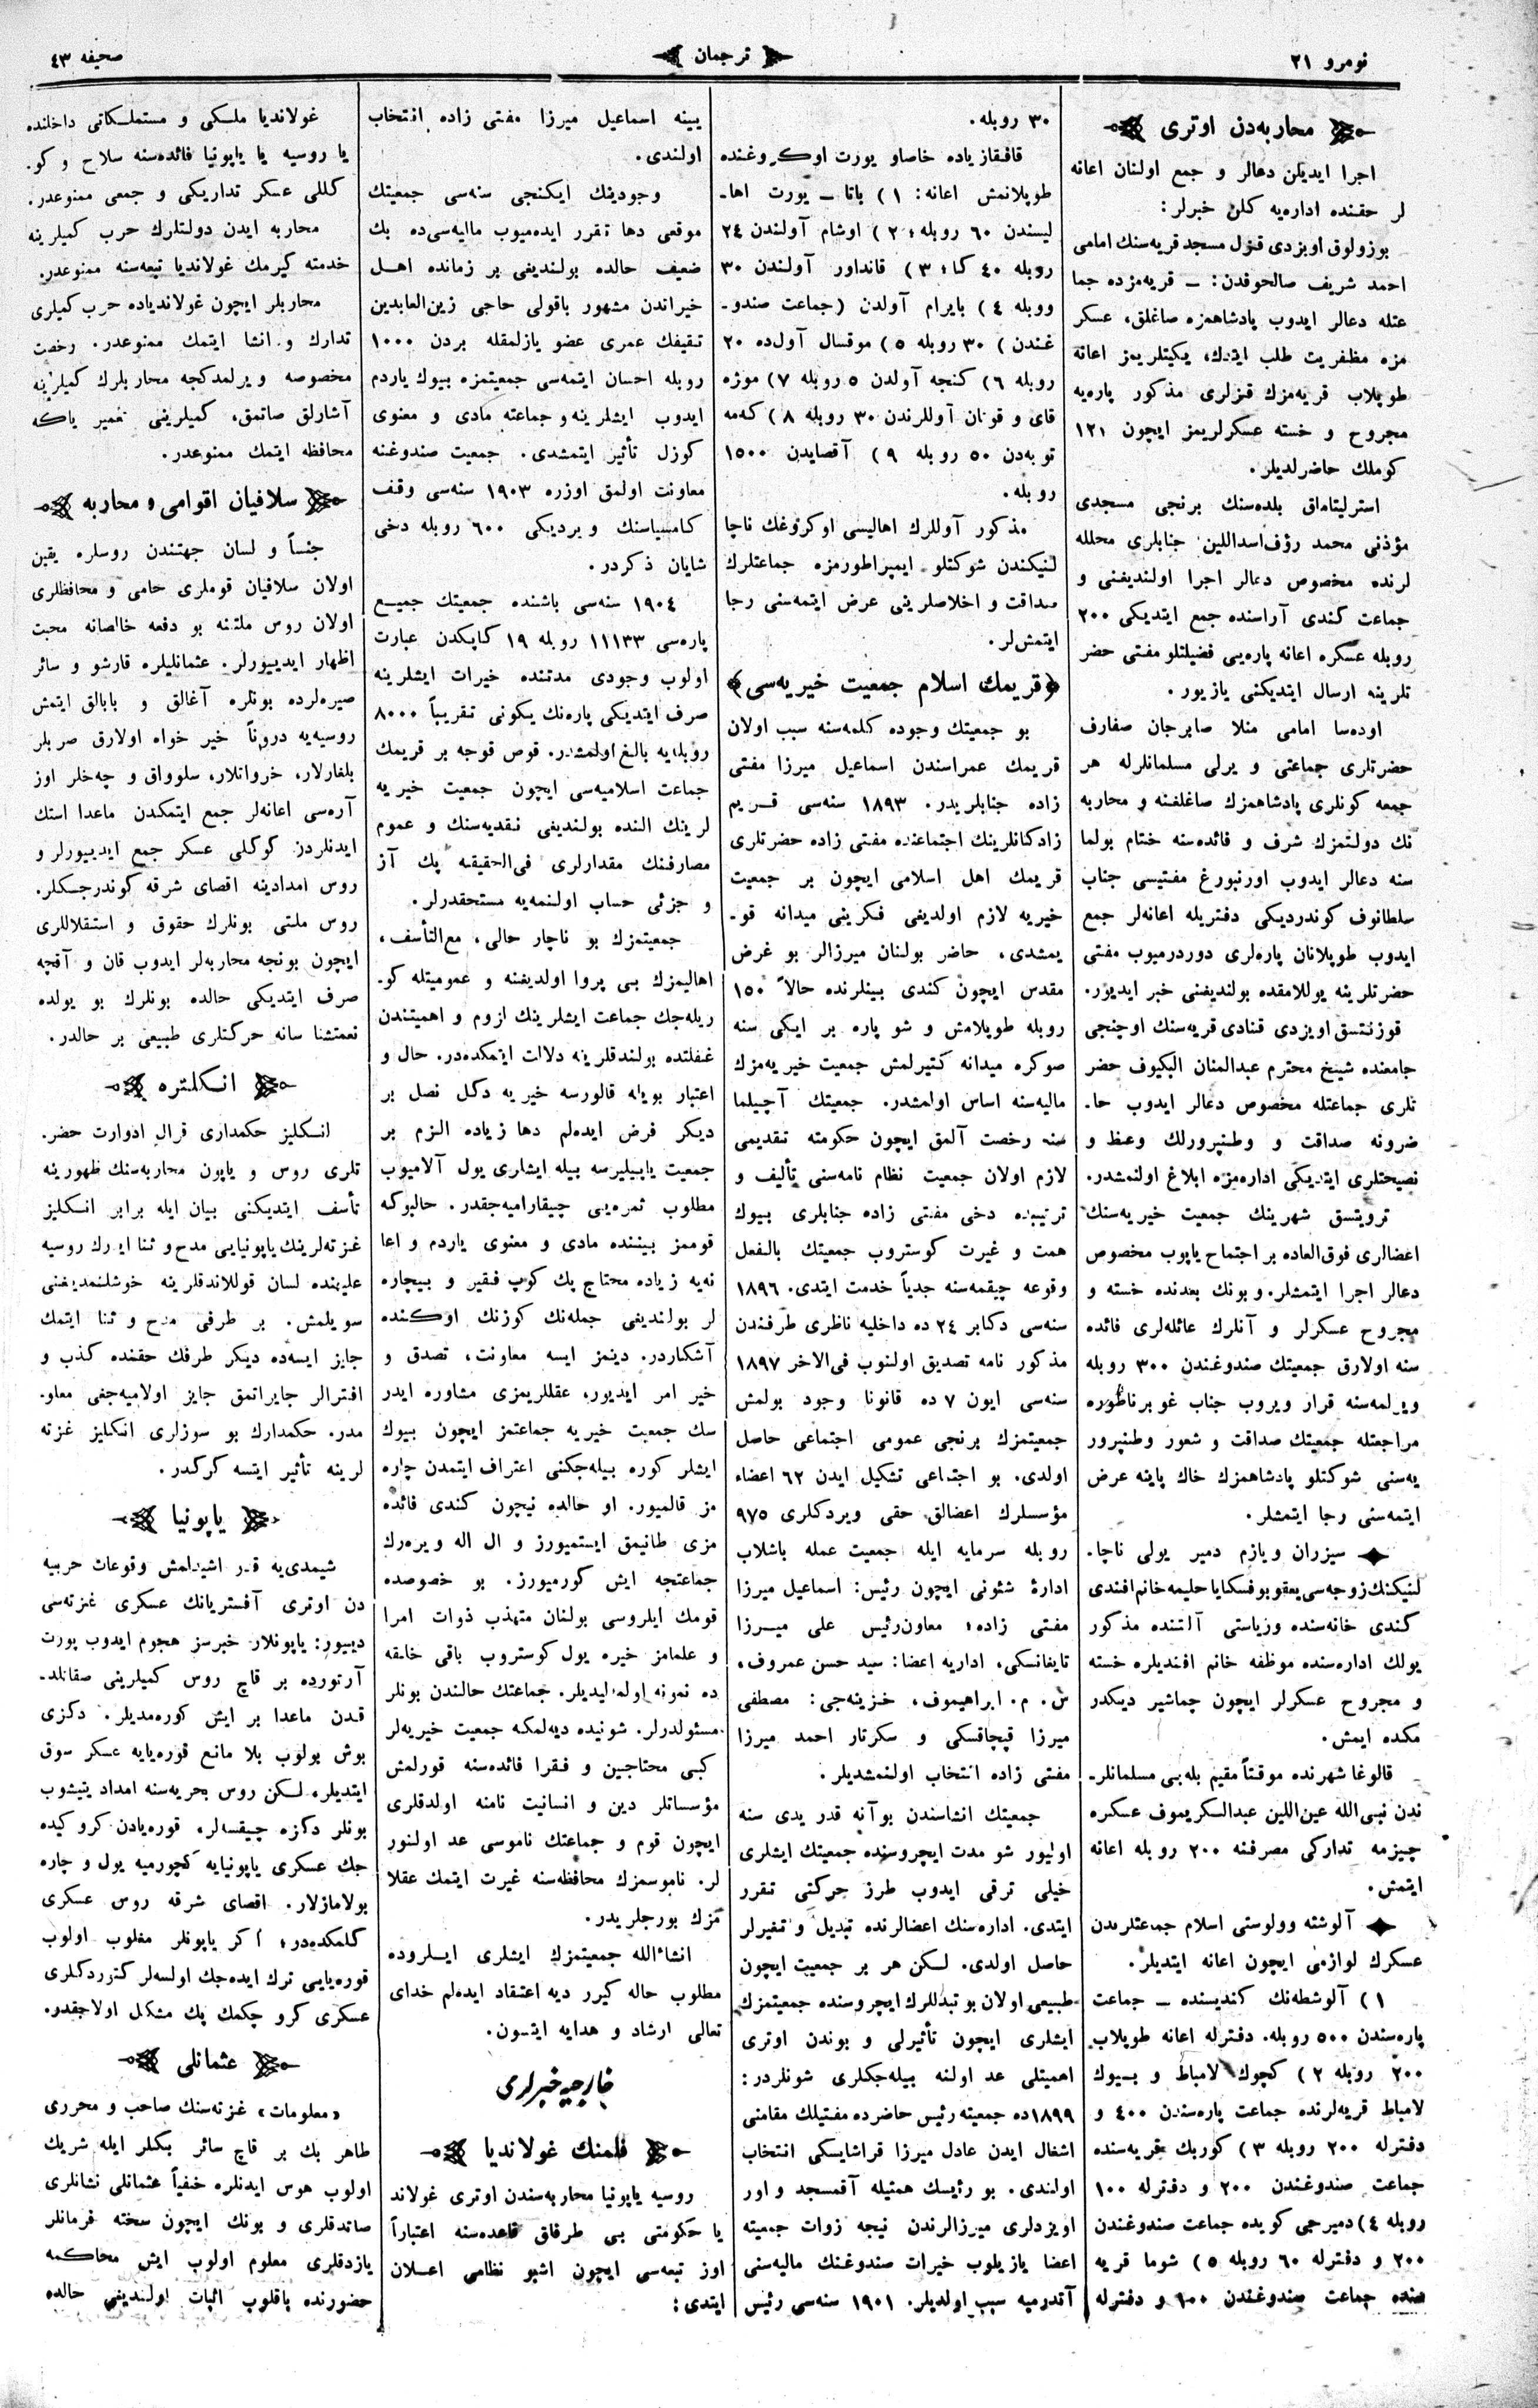 نومرو ۲۱
ترجمان
صحیفه ۴۳
محاربه‌دن اوتری
اجرا ایدیلن دعالر و جمع اولنان اعانه
لر حقنده اداره‌یه کلن خبرلر:
بوزولوق اویزدی قزل مسجد قریه‌سنك امامی
احمد شریف صالحوفدن: ــ قریه‌مزده جما
عتله دعالر ایدوب پادشاهمزه صاغلق، عسکر
مزه مظفریت طلب ایتدك، یکیتلریمز اعانه
طوپلاب قریه‌مزك قزلری مذکور پاره‌یه
مجروح و خسته عسکرلریمز ایچون ۱۲۱
کوملك حاضرلدیلر.
استرلیتاماق بلده‌سنك برنجی مسجدی
مؤذنی محمد رؤف اسداللین جنابلری محلله
لرنده مخصوص دعالر اجرا اولندیغنی و
جماعت کندی آراسنده جمع ایتدیکی ۲۰۰
روبله عسکره اعانه پاره‌یی فضیلتلو مفتی حضر
تلرینه ارسال ایتدیکنی یازیور.
اوده‌سا امامی منلا صابرجان صفارف
حضرتلری جماعتی و یرلی مسلمانلرله هر
جمعه کونلری پادشاهمزك صاغلغنه و محاربه
نك دولتمزك شرف و فائده‌سنه ختام بولما
سنه دعالر ایدوب اورنبورغ مفتیسی جناب
سلطانوف کوندردیکی دفتریله اعانه‌لر جمع
ایدوب طوپلانان پاره‌لری دوردرمیوب مفتی
حضرتلرینه یوللامقده بولندیغنی خبر ایدیور.
قوزنتسق اویزدی قنادی قریه‌سنك اوچنجی
جامعنده شیخ محترم عبدالمنان البکیوف حضر
تلری جماعتله مخصوص دعالر ایدوب حا-
ضرونه صداقت و وطنپرورلك وعظ و
نصیحتلری ایتدیکی اداره‌مزه ابلاغ اولنمشدر.
ترویتسق شهرینك جمعیت خیریه‌سنك
اعضالری فوق‌العاده بر اجتماح یاپوب مخصوص
دعالر اجرا ایتمشلر. و بونك بعدنده خسته و
مجروح عسکرلر و آنلرك عائله‌لری فائده
سنه اولارق جمعیتك صندوغندن ۳۰۰ روبله
ویرلمه‌سنه قرار ویروب جناب غوبرناطوره
مراجعتله جمعیتك صداقت و شعور وطنپرور
یه‌سنی شوکتلو پادشاهمزك خاك پاینه عرض
ایتمه‌سنی رجا ایتمشلر.
سیزران ویازم دمیر یولی ناچا-
لنیکنك زوجه‌سی یعقوبوفسکایا حلیمه خانم افندی
کندی خانه‌سنده و ریاستی آلتنده مذکور
یولك اداره‌سنده موظفه خانم افندیلره خسته
و مجروح عسکرلر ایچون چماشیر دیکدر
مکده ایمش.
قالوغا شهرنده موقتاً مقیم بله‌بی مسلمانلر-
ندن نبی‌الله عین‌اللین عبدالسکریموف عسکره
چیزمه تدارکی مصرفنه ۲۰۰ روبله اعانه
ایتمش.
آلوشته وولوستی اسلام جماعتلرندن
عسکرك لوازمی ایچون اعانه ایتدیلر.
۱) آلوشطه‌نك کندیسنده ــ جماعت
پاره‌سندن ۵۰۰ روبله. دفترله اعانه طوپلاب
۲۰۰ روبله ۲) کچوك لامباط و بیوك
لامباط قریه‌لرنده جماعت پاره‌سندن ۴۰۰ و
دفترله ۲۰۰ روبله ۳) کوربك قریه‌سنده
جماعت صندوغندن ۲۰۰ و دفترله ۱۰۰
روبله ۴) دمیرجی کویده جماعت صندوغندن
۲۰۰ و دفترله ۶۰ روبله ۵) شوما قریه
سنده جماعت صندوغندن ۶۰۰ و دفترله
۳۰ روبله.
قافقازیاده خاصاو یورت اوکروغنده
طوپلانمش اعانه: ۱) باتا ــ یورت اها-
لیسندن ۶۰ روبله؛ ۲) اوشام آولندن ۲۴
روبله ۴۰ کا؛ ۳) قانداور آولندن ۳۰
روبله ۴) بایرام آولدن (جماعت صندو-
غندن) ۳۰ روبله ۵) موقسال آول‌ده ۲۰
روبله ۶) کنجه آولدن ۵ روبله ۷) موژه
قای و قونان آوللرندن ۳۰ روبله ۸) که‌مه
توبه‌دن ۵۰ روبله ۹) آقصایدن ۱۵۰۰
روبله.
مذکور آوللرك اهالیسی اوکروغك ناچا
لنیکندن شوکتلو ایمپراطورمزه جماعتلرك
صداقت و اخلاصلرینی عرض ایتمه‌سنی رجا
ایتمش‌لر.
﴿قریمك اسلام جمعیت خیریه‌سی﴾
بو جمعیتك وجوده کلمه‌سنه سبب اولان
قریمك عمراسندن اسماعیل میرزا مفتی
زاده جنابلریدر. ۱۸۹۳ سنه‌سی قریم
زادکانلرینك اجتماعنده مفتی زاده حضرتلری
قریمك اهل اسلامی ایچون بر جمعیت
خیریه لازم اولدیغی فکرینی میدانه قو-
یمشدی. حاضر بولنان میرزالر بو غرض
مقدس ایچون کندی بینلرنده حالاً ۱۵۰
روبله طوپلامش و شو پاره بر ایکی سنه
صوکره میدانه کتیرلمش جمعیت خیریه‌مزك
مالیه‌سنه اساس اولمشدر. جمعیتك آچیلما
سنه رخصت آلمق ایچون حکومته تقدیمی
لازم اولان جمعیت نظام نامه‌سنی تألیف و
ترتیبده دخی مفتی زاده جنابلری بیوك
همت و غیرت کوستروب جمعیتك بالفعل
وقوعه چیقمه‌سنه جدیاً خدمت ایتدی. ۱۸۹۶
سنه‌سی دکابر ۲۴ ده داخلیه ناظری طرفندن
مذکور نامه تصدیق اولنوب فی‌الاخر ۱۸۹۷
سنه‌سی ایون ۷ ده قانونا وجود بولمش
جمعیتمزك برنجی عمومی اجتماعی حاصل
اولدی. بو اجتماعی تشکیل ایدن ۶۲ اعضاء
مؤسسلرك اعضالق حقی ویردکلری ۹۷۵
روبله سرمایه ایله جمعیت عمله باشلاب
ادارهٔ شئونی ایچون رئیس: اسماعیل میرزا
مفتی زاده؛ معاون‌رئیس علی میرزا
تایغانسکی، اداریه اعضا: سید حسن عمروف،
س. م. ابراهیموف، خزینه‌جی: مصطفی
میرزا قپچاقسکی و سکرتار احمد میرزا
مفتی زاده انتخاب اولنمشدیلر.
جمعیتك انشاسندن بوآنه قدر یدی سنه
اولیور شو مدت ایچروسنده جمعیتك ایشلری
خیلی ترقی ایدوب طرز حرکتی تقرر
ایتدی. اداره‌سنك اعضالرنده تبدیل و تغیرلر
حاصل اولدی. لکن هر بر جمعیت ایچون
طبیعی اولان بو تبدللرك ایچروسنده جمعیتمزك
ایشلری ایچون تأثیرلی و بوندن اوتری
اهمیتلی عد اولنه بیله‌جکلری شونلردر:
۱۸۹۹ده جمعیته رئیس حاضرده مفتیلك مقامنی
اشغال ایدن عادل میرزا قراشایسکی انتخاب
اولندی. بو رئیسك همتیله آقمسجد و اور
اویزدلری میرزالرندن نیجه زوات جمعیته
اعضا یازیلوب خیرات صندوغنك مالیه‌سنی
آتدرمیه سبب اولدیلر. ۱۹۰۱ سنه‌سی رئیس
یینه اسماعیل میرزا مفتی زاده انتخاب
اولندی.
وجودینك ایکنجی سنه‌سی جمعیتك
موقعی دها تقرر ایده‌میوب مالیه‌سی‌ده بك
ضعیف حالده بولندیغی بر زمانده اهل
خیراندن مشهور باقولی حاجی زین‌العابدین
تقیفك عمری عضو یازلمقله بردن ۱۰۰۰
روبله احسان ایتمه‌سی جمعیتمزه بیوك یاردم
ایدوب ایشلرینه و جماعته مادی و معنوی
کوزل تأثیر ایتمشدی. جمعیت صندوغنه
معاونت اولمق اوزره ۱۹۰۳ سنه‌سی وقف
کامسیاسنك ویردیکی ۶۰۰ روبله دخی
شایان ذکردر.
۱۹۰۴ سنه‌سی باشنده جمعیتك جمیع
پاره‌سی ۱۱۱۳۳ روبله ۱۹ کاپکدن عبارت
اولوب وجودی مدتنده خیرات ایشلرینه
صرف ایتدیکی پاره‌نك یکونی تقریباً ۸۰۰۰
روبله‌یه بالغ اولمشدر. قوص قوجه بر قریمك
جماعت اسلامیه‌سی ایچون جمعیت خیریه
لرینك النده بولندیغی نقدیه‌سنك و عموم
مصارفنك مقدارلری فی‌الحقیقه پك آز
و جزئی حساب اولنمه‌یه مستحقدرلر.
جمعیتمزك بو ناچار حالی، مع‌التأسف،
اهالیمزك بی پروا اولدیغنه و عمومیتله کو-
ریله‌جك جماعت ایشلرینك لزوم و اهمیتندن
غفلتده بولندقلرینه دلالت ایتمکده‌در. حال و
اعتبار بویله قالورسه خیریه دکل نصل بر
دیکر فرض ایده‌لم دها زیاده الزم بر
جمعیت یاپیلیرسه بیله ایشلری یول آلامیوب
مطلوب ثمره‌یی چیقارامیه‌جقدر. حالبوکه
قوممز بیننده مادی و معنوی یاردم و اعا
نه‌یه زیاده محتاج پك کوپ فقیر و بیچاره
لر بولندیغی جمله‌نك کوزنك اوکنده
آشکاردر. دینمز ایسه معاونت، تصدق و
خیر امر ایدیور، عقللریمزی مشاوره ایدر
سك جمعیت خیریه جماعتمز ایچون بیوك
ایشلر کوره بیله‌جکنی اعتراف ایتمدن چاره
مز قالمیور. او حالده نیچون کندی فائده
مزی طانیمق ایستمیورز و ال اله ویره‌رك
جماعتچه ایش کورمیورز. بو خصوصده
قومك ایلروسی بولنان متهذب ذوات امرا
و علمامز خیره یول کوستروب باقی خلقه
ده نمونه اولمالیدیلر. جماعتك حالندن بونلر
مسئولدرلر. شونیده دیه‌لمکه جمعیت خیریه‌لر
کبی محتاجین و فقرا فائده‌سنه قورلمش
مؤسساتلر دین و انسانیت نامنه اولدقلری
ایچون قوم و جماعتك ناموسی عد اولنور
لر. ناموسمزك محافظه‌سنه غیرت ایتمك عقلا
مزك بورجلریدر.
انشاءالله جمعیتمزك ایشلری ایلروده
مطلوب حاله کیرر دیه اعتقاد ایده‌لم خدای
تعالی ارشاد و هدایه ایتسون.
خارجیه خبرلری
فلمنك غولاندیا
روسیه یاپونیا محاربه‌سندن اوتری غولاند
یا حکومتی بی طرفلق قاعده‌سنه اعتباراً
اوز تبعه‌سی ایچون اشبو نظامی اعلان
ایتدی:
غولاندیا ملکی و مستملکاتی داخلنده
یا روسیه یا یاپونیا فائده‌سنه سلاح و کو-
کللی عسکر تداریکی و جمعی ممنوعدر.
محاربه ایدن دولتلرك حرب کمیلرینه
خدمته کیرمك غولاندیا تبعه‌سنه ممنوعدر.
محاربلر ایچون غولاندیاده حرب کمیلری
تدارك و انشا ایتمك ممنوعدر. رخصت
مخصوصه ویرلمدکجه محاربلرك کمیلرینه
آشارلق صاتمق، کمیلرینی تعمیر یاکه
محافظه ایتمك ممنوعدر.
سلافیان اقوامی و محاربه
جنساً و لسان جهتندن روسلره یقین
اولان سلافیان قوملری حامی و محافظلری
اولان روس ملتنه بو دفعه خالصانه محبت
اظهار ایدییورلر. عثمانلیلره قارشو و سائر
صیره‌لرده بونلره آغالق و بابالق ایتمش
روسیه‌یه دروناً خیر خواه اولارق صربلر
بلغارلار، خرواتلار، سلوواق و چه‌خلر اوز
آره‌سی اعانه‌لر جمع ایتمکدن ماعدا استك
ایدنلردن کوکلی عسکر جمع ایدییورلر و
روس امدادینه اقصای شرقه کوندرجکلر.
روس ملتی بونلرك حقوق و استقلاللری
ایچون بونجه محاربه‌لر ایدوب قان و آقچه
صرف ایتدیکی حالده بونلرك بو یولده
نعمتشنا سانه حرکتلری طبیعی بر حالدر.
انکلتره
انکلیز حکمداری قرال ادوارت حضر-
تلری روس و یاپون محاربه‌سنك ظهورینه
تأسف ایتدیکنی بیان ایله برابر انکلیز
غزته‌لرینك یاپونیایی مدح و ثنا ایدرك روسیه
علیهنده لسان قوللاندقلرینه خوشلنمدیغنی
سویلمش. بر طرفی مدح و ثنا ایتمك
جایز ایسه‌ده دیکر طرفك حقنده کذب و
افترالر جایراتمق جایز اولامیه‌جغی معلو-
مدر. حکمدارك بو سوزلری انکلیز غزته
لرینه تأثیر ایتسه کرکدر.
یاپونیا
شیمدی‌یه قدر اشیدلمش وقوعات حربیه
دن اوتری آفستریانك عسکری غزته‌سی
دییور: یاپونلار خبرسز هجوم ایدوب پورت
آرتورده بر قاچ روس کمیلرینی صقاتلد-
قدن ماعدا بر ایش کوره‌مدیلر. دکزی
بوش بولوب بلا مانع قوره‌یایه عسکر سوق
ایتدیلر، لکن روس بحریه‌سنه امداد یتیشوب
بونلر دکزه چیقسه‌لر، قوره‌یادن کرو کیده
جك عسکری یاپونیایه کچورمیه یول و چاره
بولامازلار. اقصای شرقه روس عسکری
کلمکده‌در؛ اکر یاپونلر مغلوب اولوب
قوره‌یایی ترك ایده‌جك اولسه‌لر کتوردکلری
عسکری کرو چکمك پك مشکل اولاجقدر.
عثمانلی
«معلومات» غزته‌سنك صاحب و محرری
طاهر بك بر قاچ سائر بکلر ایله شریك
اولوب هوس ایدنلره خفیاً عثمانلی نشانلری
صاتدقلری و بونك ایچون سخته فرمانلر
یازدقلری معلوم اولوب ایش محاکمه
حضورنده باقلوب اثبات اولندیغی حالده